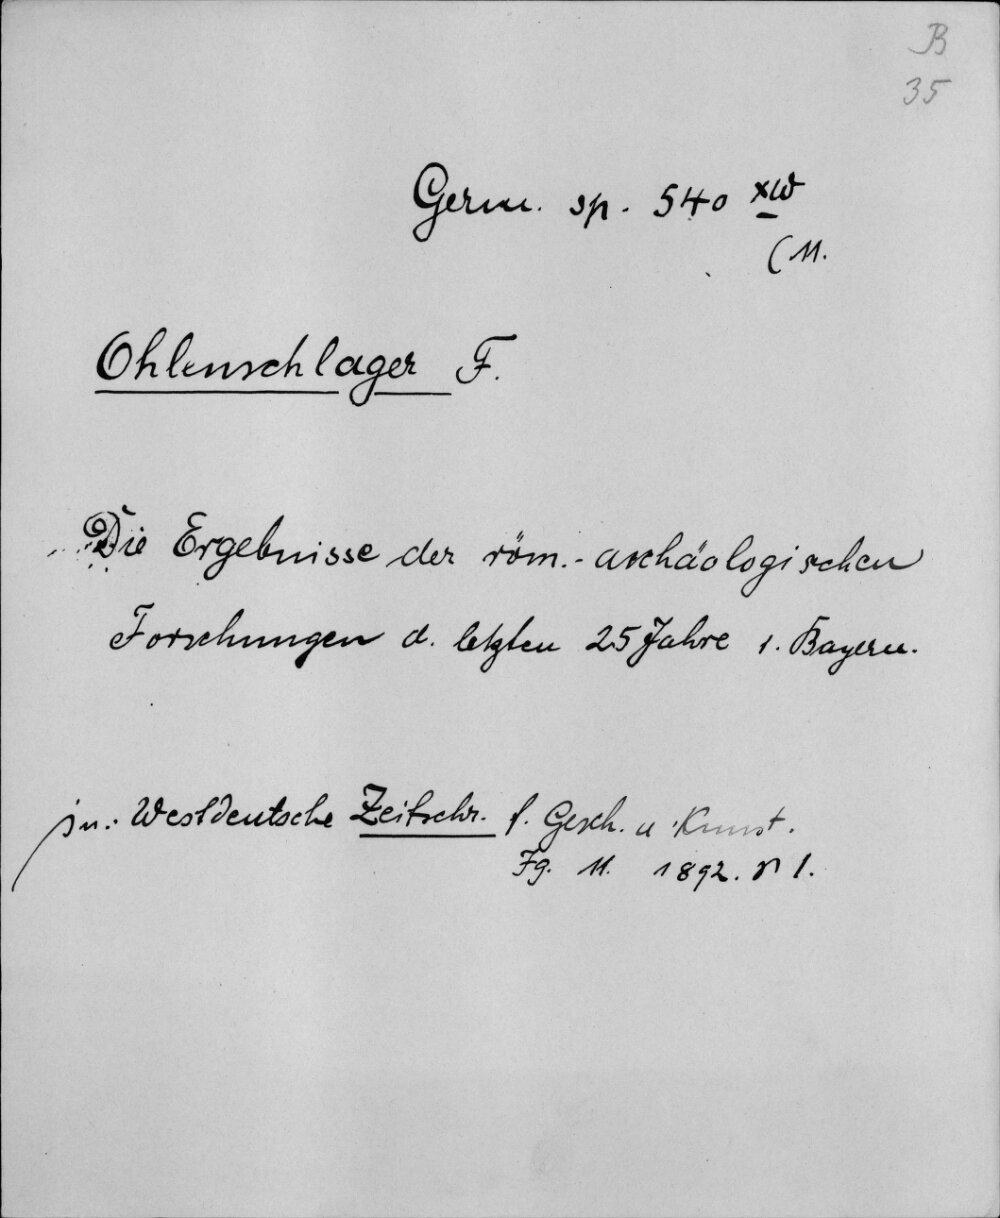 B
35
Germ. sp. 540 xw
(11.
Ohlenschlager F.
Die Ergebnisse der röm.-archäologischen
Forschungen d. letzten 25 Jahre i. Bayern.
in: Westdeutsche Zeitschr. f. Gesch. u Kunst.
Jg. 11. 1892. 1.